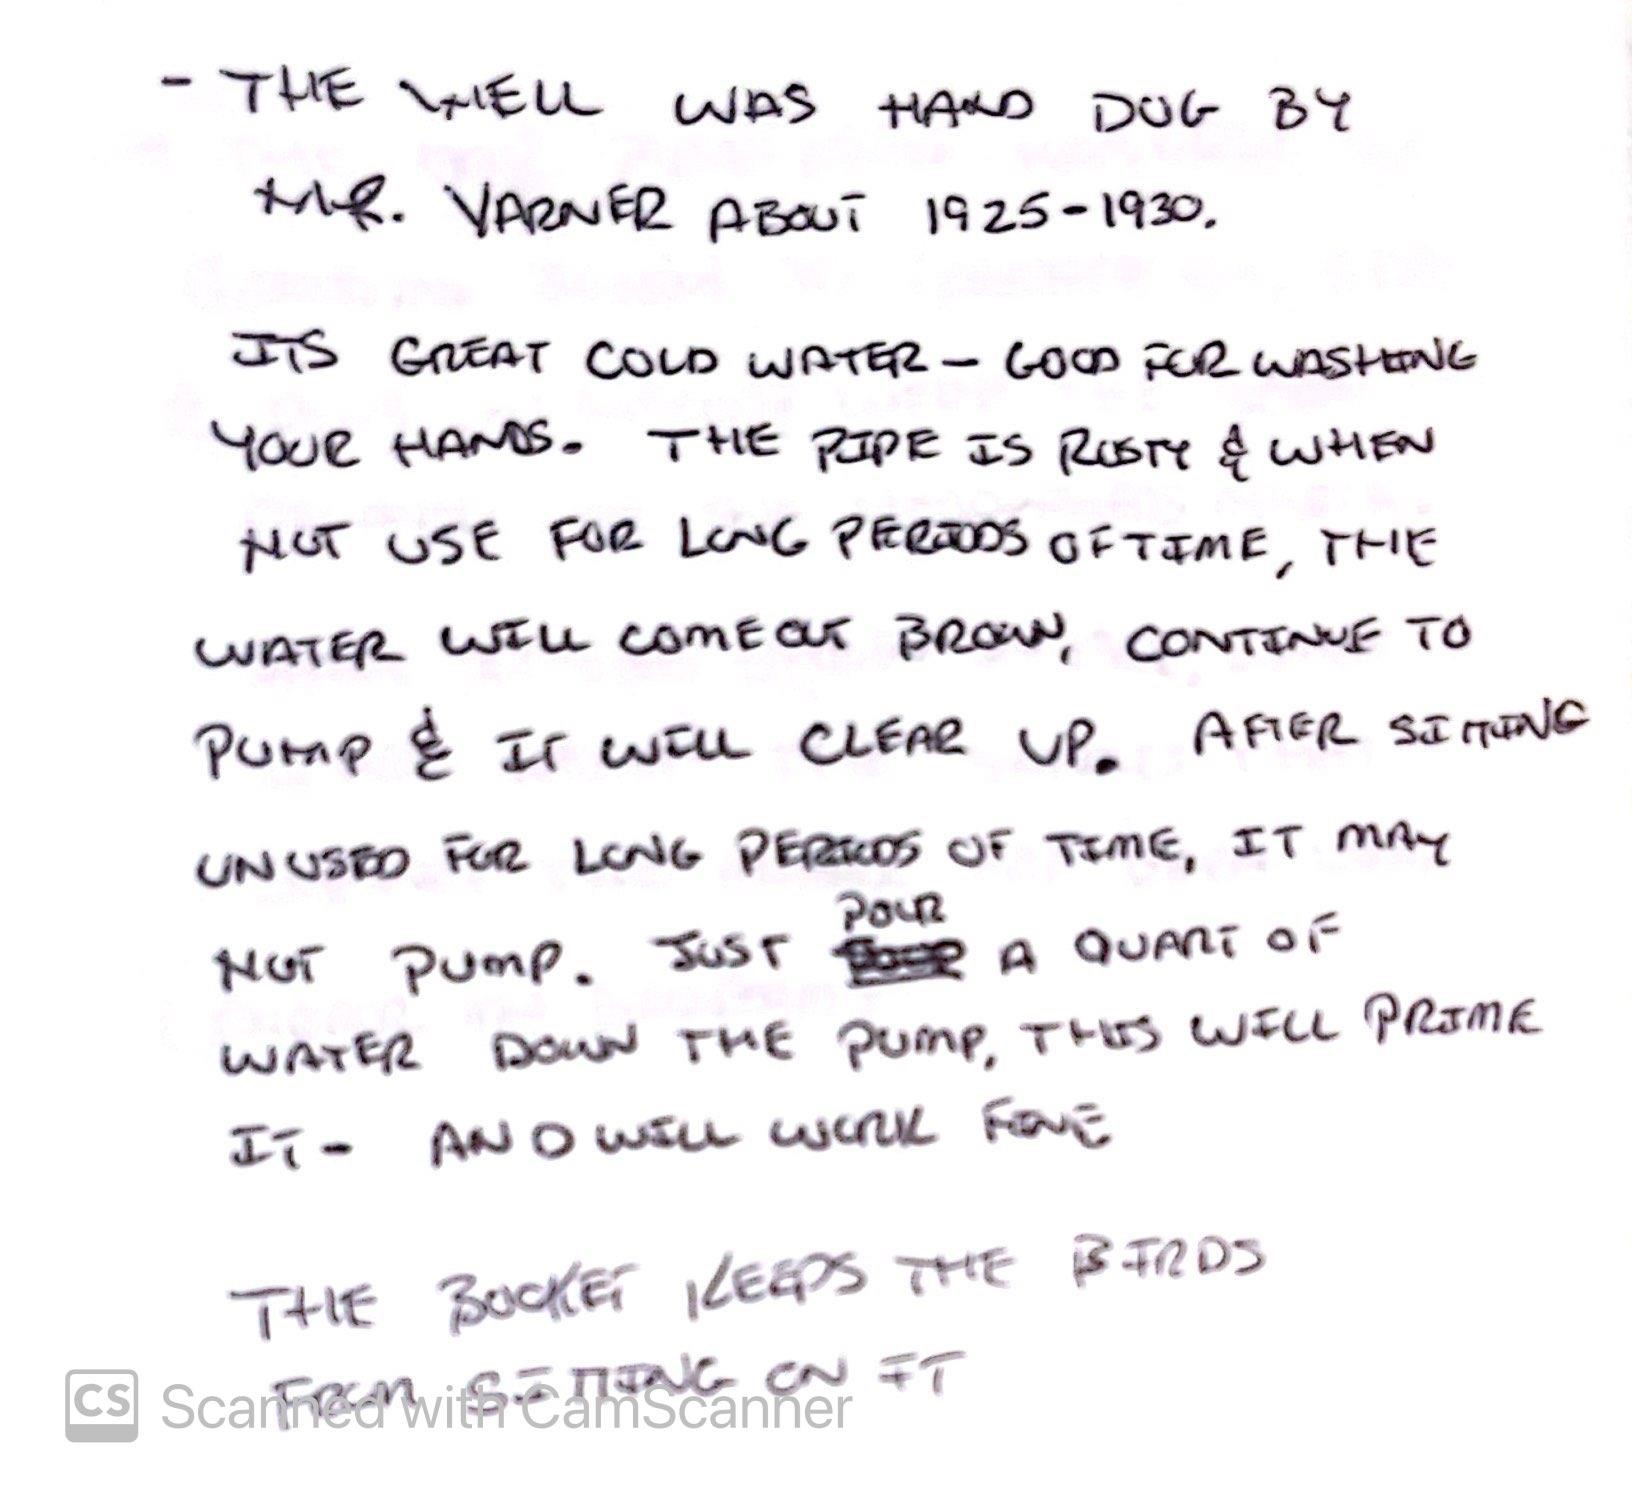 - THE WELL WAS HAND DUG BY
MR. VARNER ABOUT 1925-1930.
ITS GREAT COLD WATER - GOOD FOR WASHING
YOUR HANDS. THE PIPE IS RUSTY & WHEN
NOT USE FOR LONG PERIODS OF TIME, THE
WATER WILL COME OUT BROWN, CONTINUE TO
PUMP & IT WILL CLEAR UP. AFTER SITTING
UNUSED FOR LONG PERIODS OF TIME, IT MAY
NOT PUMP. JUST POUR A QUART OF
WATER DOWN THE PUMP, THIS WILL PRIME
IT - AND WILL WORK FINE
THE BUCKET KEEPS THE BIRDS
FROM SITTING ON IT
CS Scanned with CamScanner